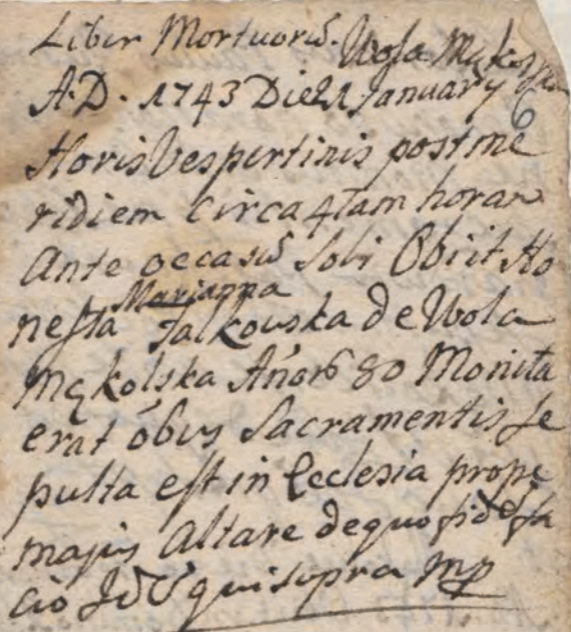 Liber Mortuorũ. Wola Mąkolska
A.D. 1743 Die 21 January
6
Horis Vespertinis postme
ridiem circa 4tam horam
Ante occasũ Soli Obiit Ho
Marianna
nesta Falkowska de Wola
Mąkolska Añorũ 80 Monita
erat õbus Sacramentis Se
pulta est in Ecclesia prope
majus Altare de quo fidẽ fa
cio Idẽ qui supra mp